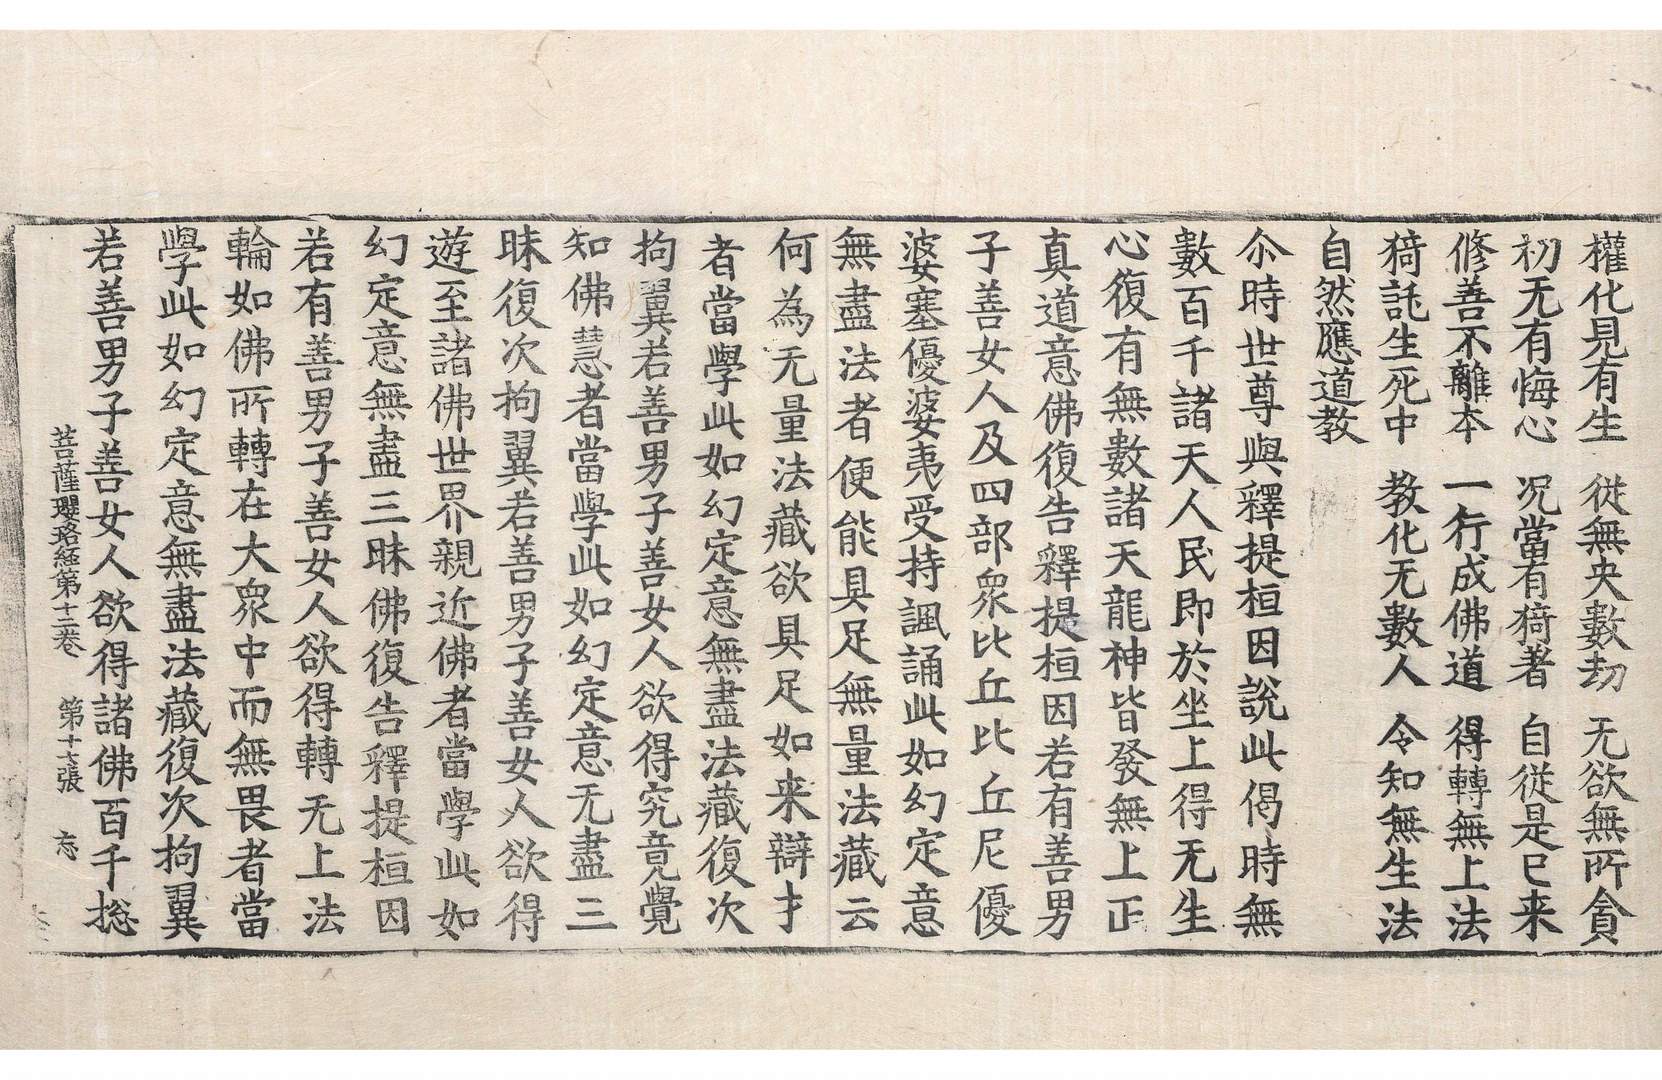 權化見有生　從無央數劫　无欲無所貪
初无有悔心　況當有猗著　自從是已来
修善不離本　一行成佛道　得轉無上法
猗託生死中　教化无數人　令知無生法
自然應道教
尒時世尊與釋提桓因說此偈時無
數百千諸天人民即於坐上得无生
心復有無數諸天龍神皆發無上正
真道意佛復告釋提桓因若有善男
子善女人及四部衆比丘比丘尼優
婆塞優婆夷受持諷誦此如幻定意
無盡法者便能具足無量法藏云
何為无量法藏欲具足如来辯才
者當學此如幻定意無盡法藏復次
拘翼若善男子善女人欲得究竟覺
知佛慧者當學此如幻定意无盡三
昧復次拘翼若善男子善女人欲得
遊至諸佛世界親近佛者當學此如
幻定意無盡三昧佛復告釋提桓因
若有善男子善女人欲得轉无上法
輪如佛所轉在大衆中而無畏者當
學此如幻定意無盡法藏復次拘翼
若善男子善女人欲得諸佛百千揔
菩薩瓔珞經第十三卷　第十七張　忘